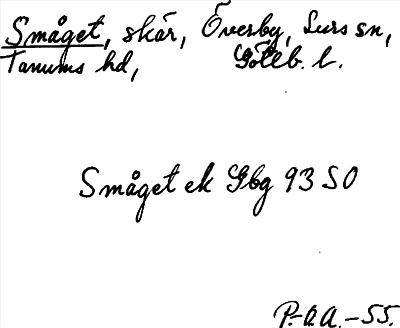 Småget, skär, Överby, Lurs sn,
Tanums hd, Göteb. l.
Småget ek Gbg 93 SO
P.-A.A.-55.